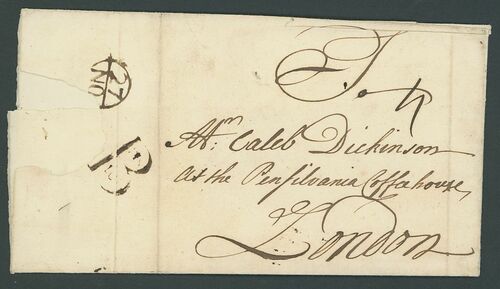 27
NO
B
To
4
Mr: Caleb Dickinson
att the Pensilvania Coffeehouse
London